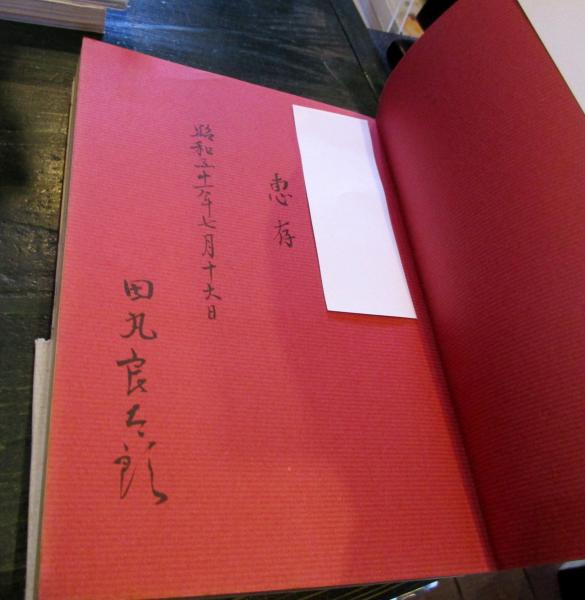 惠存
昭和五十六年七月十六日
田丸良太郎